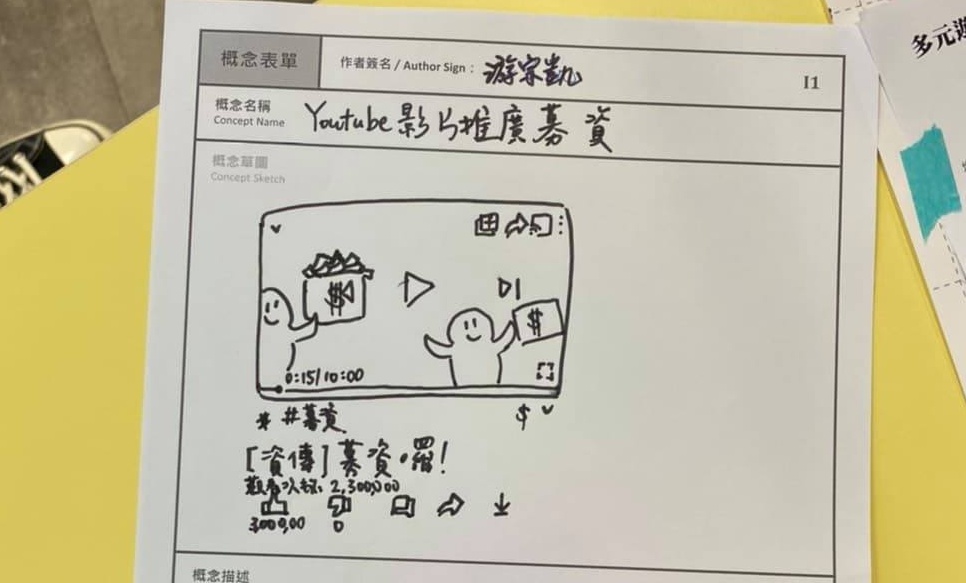 多元遊
概念表單
作者簽名 / Author Sign： 游宗凱
I1
概念名稱
Concept Name
Youtube影片推廣募資
概念草圖
Concept Sketch
$
$
0:15/10:00
#募資
$
[資傳] 募資囉!
觀看次數: 2,300,000
3,000,00
0
概念描述